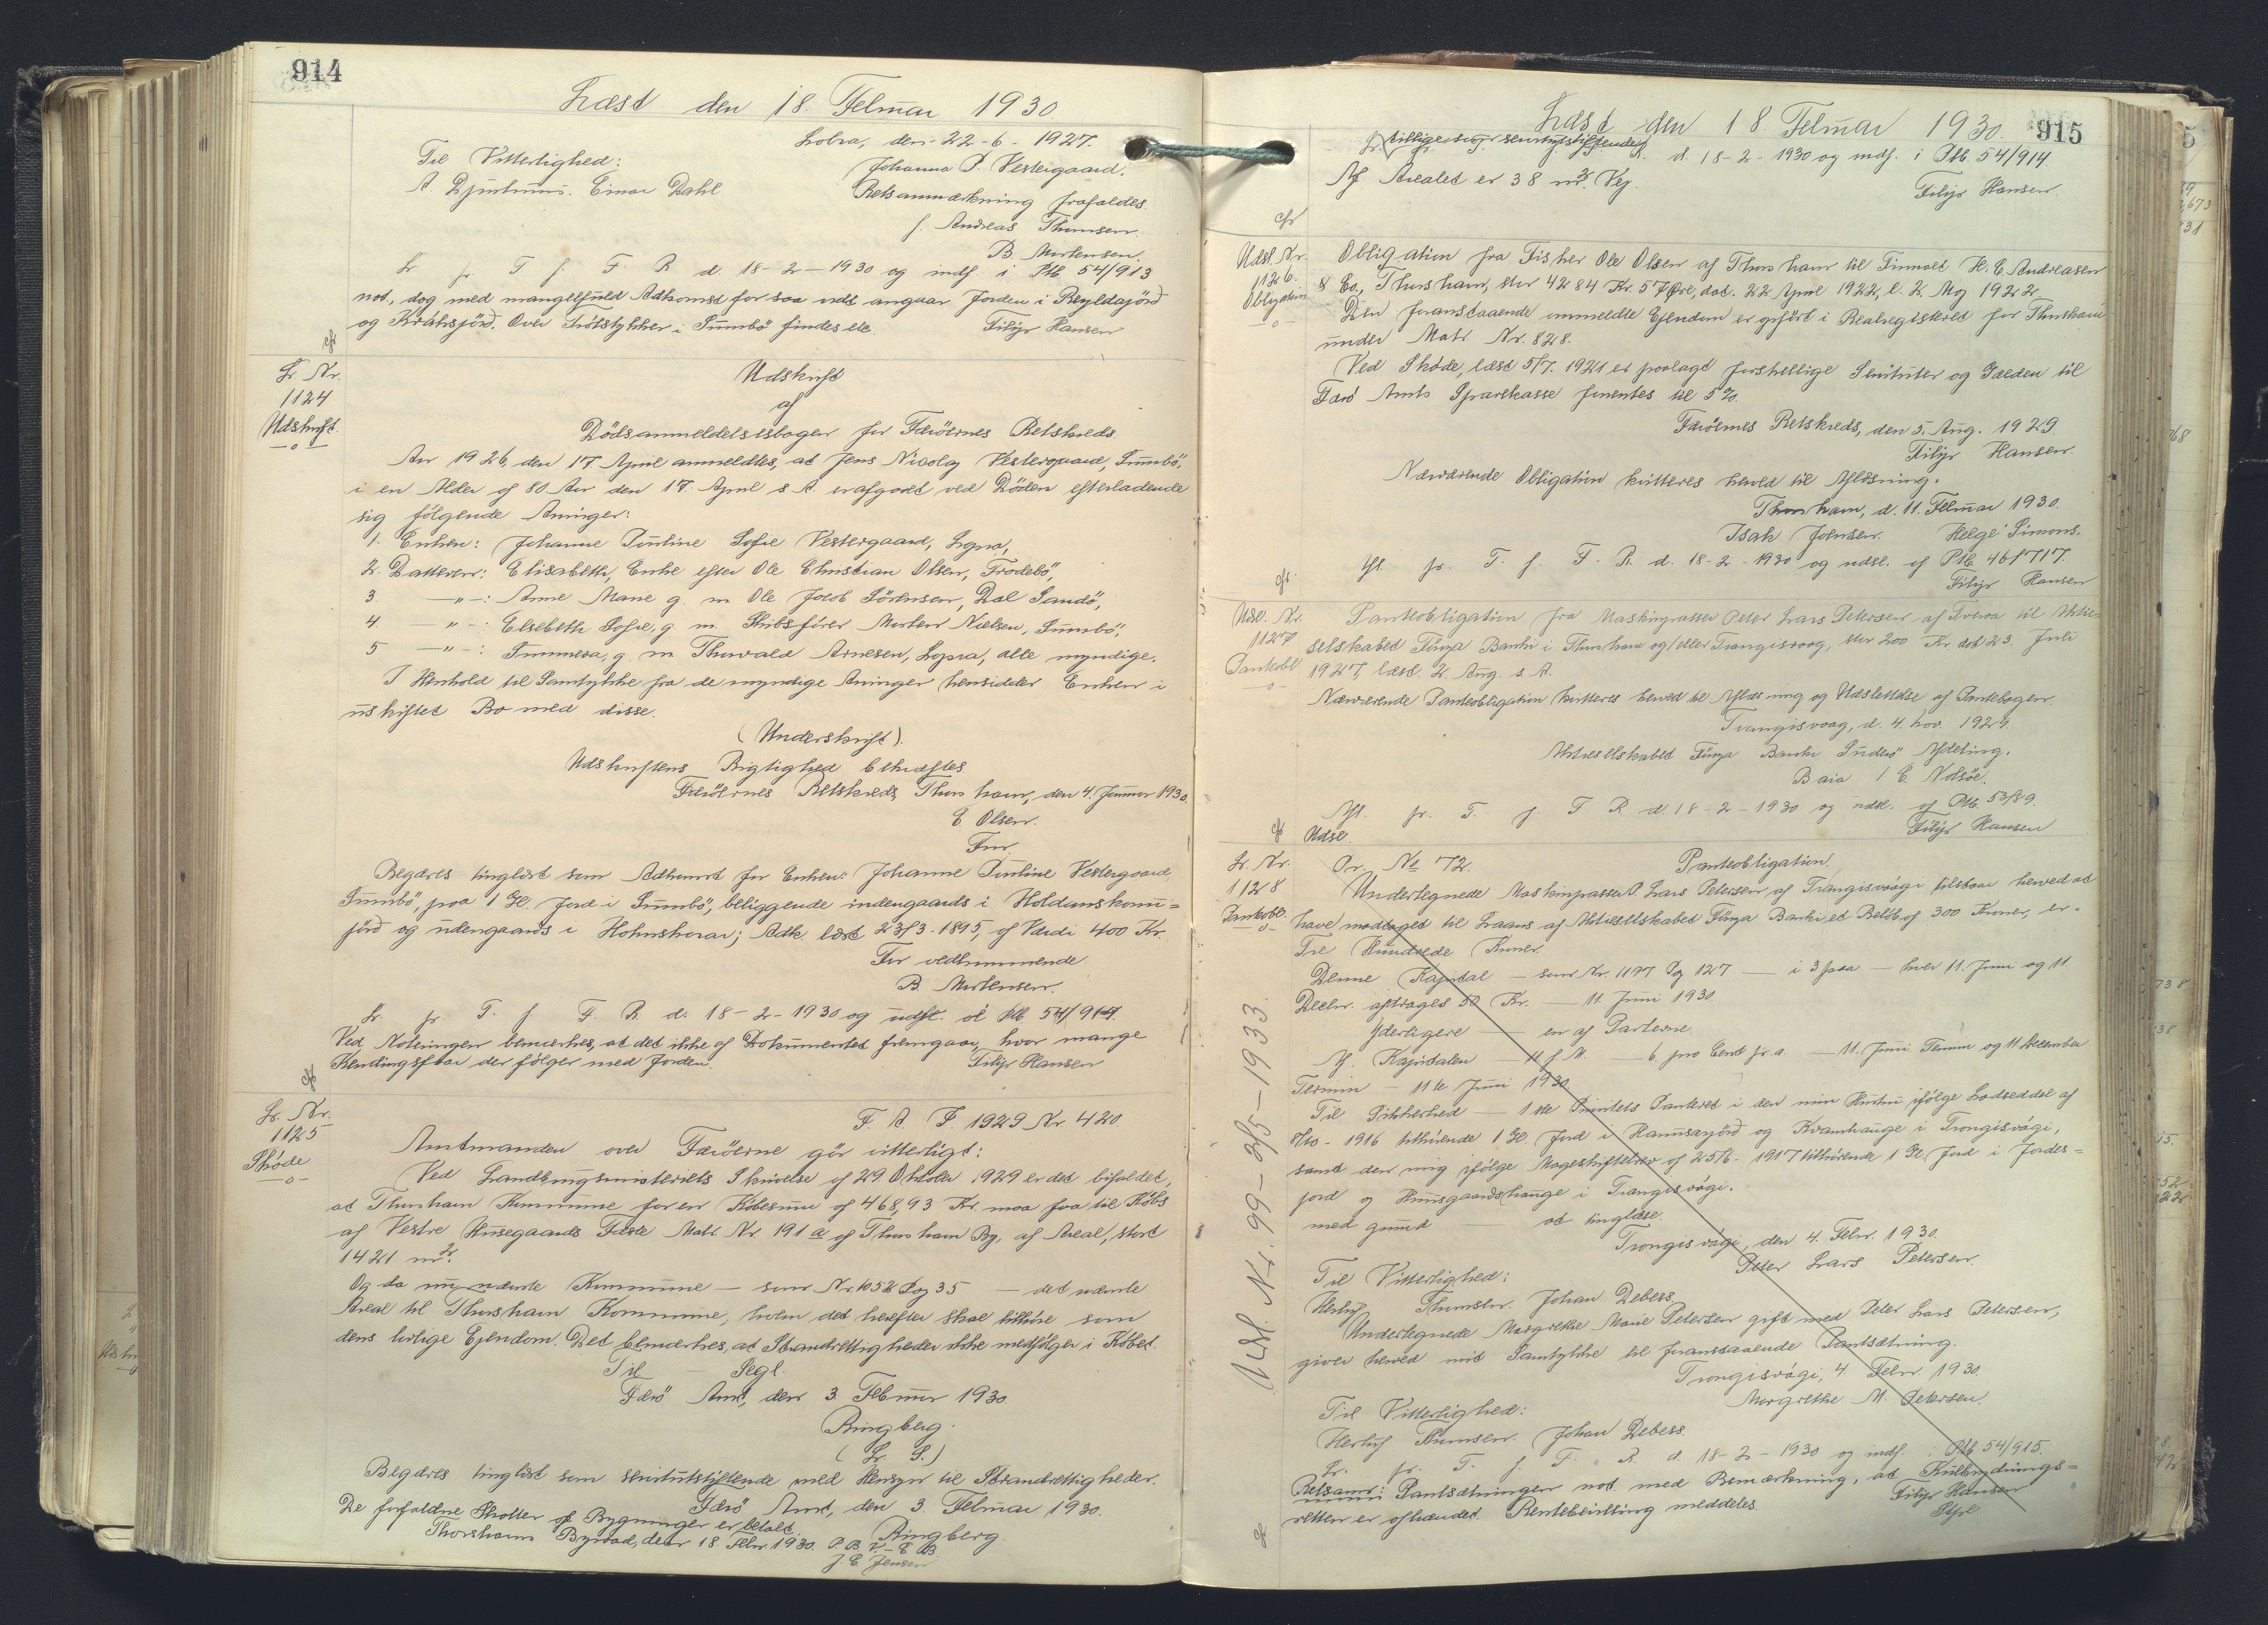 914
Læst den 18. Februar 1930.
Lobra, den 22-6-1927.
Til Vitterlighed:
Johanna P. Vestergaard.
A. Djurhuus. Einar Dahl
Retsanmærkning frafaldes.
f. Andreas Thomsen.
B. Mortensen.
Lr. pr. T. f. F. R. d. 18-2-1930 og indf. i Ptb 54/913
not., dog med mangelfuld Adkomst for saa vidt angaar Jorden i Reyldajörd
og Kráksjörd. Over Tröлstykker i Sumbö findes ete.
Filip Hansen
cfr
Lr. Nr.
1124
Udskrift
Udskrift
af
Dödsanmeldelsesbogen for Færöernes Retskreds.
Aar 1926, den 17 April anmeldtes, at Jens Nicolaj Vestergaard, Sumbö,
i en Alder af 80 Aar den 17. April s. A. er afgaaet ved Döden efterladende
sig fölgende Arvinger:
1. Enken: Johanne Pauline Sofie Vestergaard, Lopra,
2. Datteren: Elisabeth, Enke efter Ole Christian Olsen, Frodebö,
3 -"-: Anne Marie g. m. Ole Jacob Sörensen, Dal Sandö,
4 -"-: Elsebeth Sofie, g. m. Skibsförer Morten Nielsen, Sumbö,
5 -"-: Summera, g. m. Thorvald Arnesen, Lopra, alle myndige.
I Henhold til Samtykke fra de myndige Arvinger hensidder Enken i
uskiftet Bo med disse.
(Underskrift).
Udskriftens Rigtighed bekræftes
Færöernes Retskreds, Thorshavn, den 4. Januar 1930.
E. Olsen.
Fm.
Begæres tinglæst som Adkomst for Enken: Johanne Pauline Vestergaard,
Sumbö, paa 1 Gl. Jord i Sumbö, beliggende indengaards i Holdanskonu=
jörd og udengaards i Hohnskorar; Adk. læst 23/3-1895, af Værdi 400 Kr.
For vedkommende.
B. Mortensen.
Lr. pr. T. f. F. R. d. 18-2-1930 og indf. i Ptb 54/914.
Ved Noteringen bemærkes, at det ikke af Dokumentet fremgaar, hvor mange
Kendingsfaar der fölger med Jorden.
Filip Hansen
cfr
Lr. Nr.
1125
Skøde
F. A. J. 1929 Nr. 420.
Amtmanden over Færöerne gör vitterligt:
Ved Landbrugsministeriets Skrivelse af 29 Oktober 1929 er det bifaldet,
at Thorshavn Kommune for en Købesum af 468,93 Kr. maa faa til Købs
af Vestre Husegaards Fæste Matr. Nr. 191 a af Thorshavn By, af Areal, stort
1421 m².
Og da nu nævnte Kommune — som Nr. 1052 Pag 35 — det nævnte
Areal til Thorshavn Kommune, hvem det herefter skal tilhöre som
dens lovlige Ejendom. Det bemærkes, at Strandrettigheder ikke medfölger i Købet.
Til — Segl.
Færö Amt, den 3. Februar 1930.
Ringberg.
(L. S.)
Begæres tinglæst som servitutstiftende med Hensyn til Strandrettigheder.
Færö Amt, den 3 Februar 1930.
Ringberg.
De forfaldne Skatter af Bygninger er betalt.
Thorshavns Byraad, den 18. Febr. 1930. P. B. V. E. B.
J. E. Jensen
915
Læst den 18. Februar 1930.
Lr. tillige som servitutstiftende
d. 18-2-1930 og indf. i Ptb. 54/914
Af Arealet er 38 m². Vej.
Filip Hansen.
cfr
Udsl. Nr.
1126.
Obligation
Obligation fra Fisker Ole Olsen af Thorshavn til Firmaet H. C. Andreasen
& Co., Thorshavn, stor 4284 Kr. 57 Øre, dat. 22 April 1922, l. 2. Maj 1922.
Den foranstaaende ommeldte Ejendom er opført i Realregisteret for Thorshavn
under Matr. Nr. 828.
Ved Skøde, læst 5/7. 1921 er paalagt forskellige Servituter og Gælden til
Færö Amts Sparekasse forrentes til 5%.
Færöernes Retskreds, den 5. Aug. 1929.
Filip Hansen.
Nærværende Obligation kvitteres herved til Aflösning.
Thorshavn, d. 11. Februar 1930.
Isak Joensen. Helge Simons.
Afl. pr. T. f. F. R. d. 18-2-1930 og udsl. af Ptb. 46/717.
Filip Hansen
cfr.
Udsl. Nr.
1127
Pantobl
Pantobligation fra Maskinpasser Peter Lars Petersen af Tveraa til Aktie-
selskabet Föroya Banki i Thorshavn og/eller Trangisvaag, stor 200 Kr. dat 23. Juli
1927, læst. 2. Aug. s. A.
Nærværende Pantobligation kvitteres herved til Aflæsning og Udslettelse af Pantebogen.
Trangisvaag, d. 4. Nov. 1929.
Aktieselskabet Föroya Banki Suderö Afdeling.
Baia / C. Nolsöe.
Afl. pr. T. f. F. R. d. 18-2-1930 og udsl. af Ptb. 53/89.
Filip Hansen
cfr Udsl.
Lr. Nr.
1128
Pantobl.
Or. No 72.
Pantobligation.
Undertegnede Maskinpasser P. Lars Petersen af Trangisvaagi tilstaar herved at
have modtaget til Laans af Aktieselskabet Föroya Banki et Belöb af 300 Kroner, er=
Tre Hundrede Kroner.
Denne Kapital — som Nr. 1197 Pag 127 — i 3 paa — hver 11. Juni og 11
Decbr. afdrages 50 Kr. — 11. Juni 1930
Yderligere — en af Parterne.
Af Kapitalen — 11 f. M. — 6 pro Cent p. a. — 11. Juni Termin og 11 December
Termin — 11te Juni 1930
Til Sikkerhed — 1ste Prioritets Panteret i den min Hustru ifölge Lodseddel af
9/10-1916 tilhörende 1 Gl. Jord i Hanusarjörd og Kvamhauge i Trongisvági,
samt den mig ifölge Mageskiftebrev af 25/6-1917 tilhörende 1 Gl. Jord i Jordes=
jord og Husgaardshauge i Trangisvági.
med grund at tinglæse.
Trongisvági, den 4. Febr. 1930.
Peter Lars Petersen.
Til Vitterlighed:
Herluf Thomsen. Johan Debess.
Undertegnede Margrethe Marie Petersen gift med Peter Lars Petersen,
giver herved mit Samtykke til foranstaaende Pantsætning.
Trongisvági, 4 Febr. 1930.
Margrethe M. Petersen.
Til Vitterlighed:
Herluf Thomsen. Johan Debess.
Lr. pr. T. f. F. R. d. 18-2-1930 og indf. i Ptb 54/915.
Retsanm: Pantsætningen not. med Bemærkning, at Kulbrydnings=
retten er afhændet. Rentebevilling meddeles.
Filip Hansen
Udsl. Nr. 99-9/5-1933.